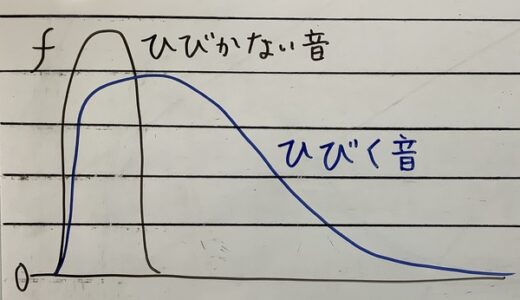 f
ひびかない音
ひびく音
0